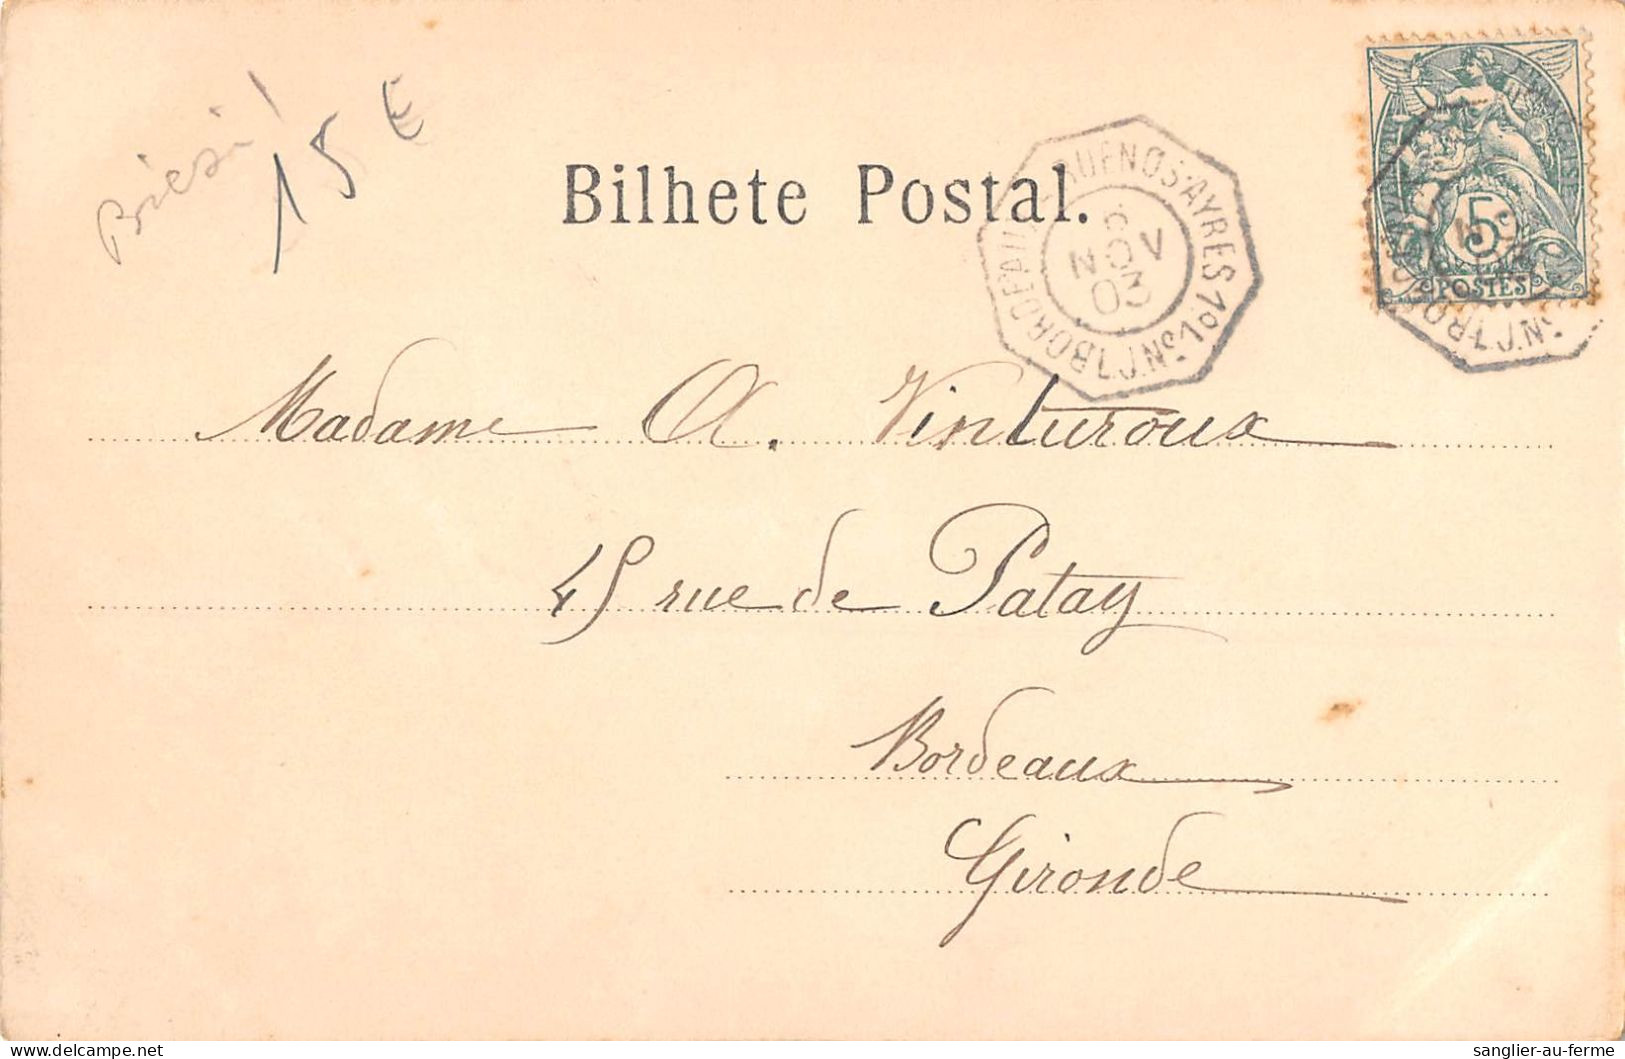 Brésil
15 €
Bilhete Postal.
BORDEAUX BUENOS-AYRES 1º L.J.Nº1
6
NOV
03
5
POSTES
Madame A. Vinturoux
45 rue de Patay
Bordeaux
Gironde
sanglier-au-ferme